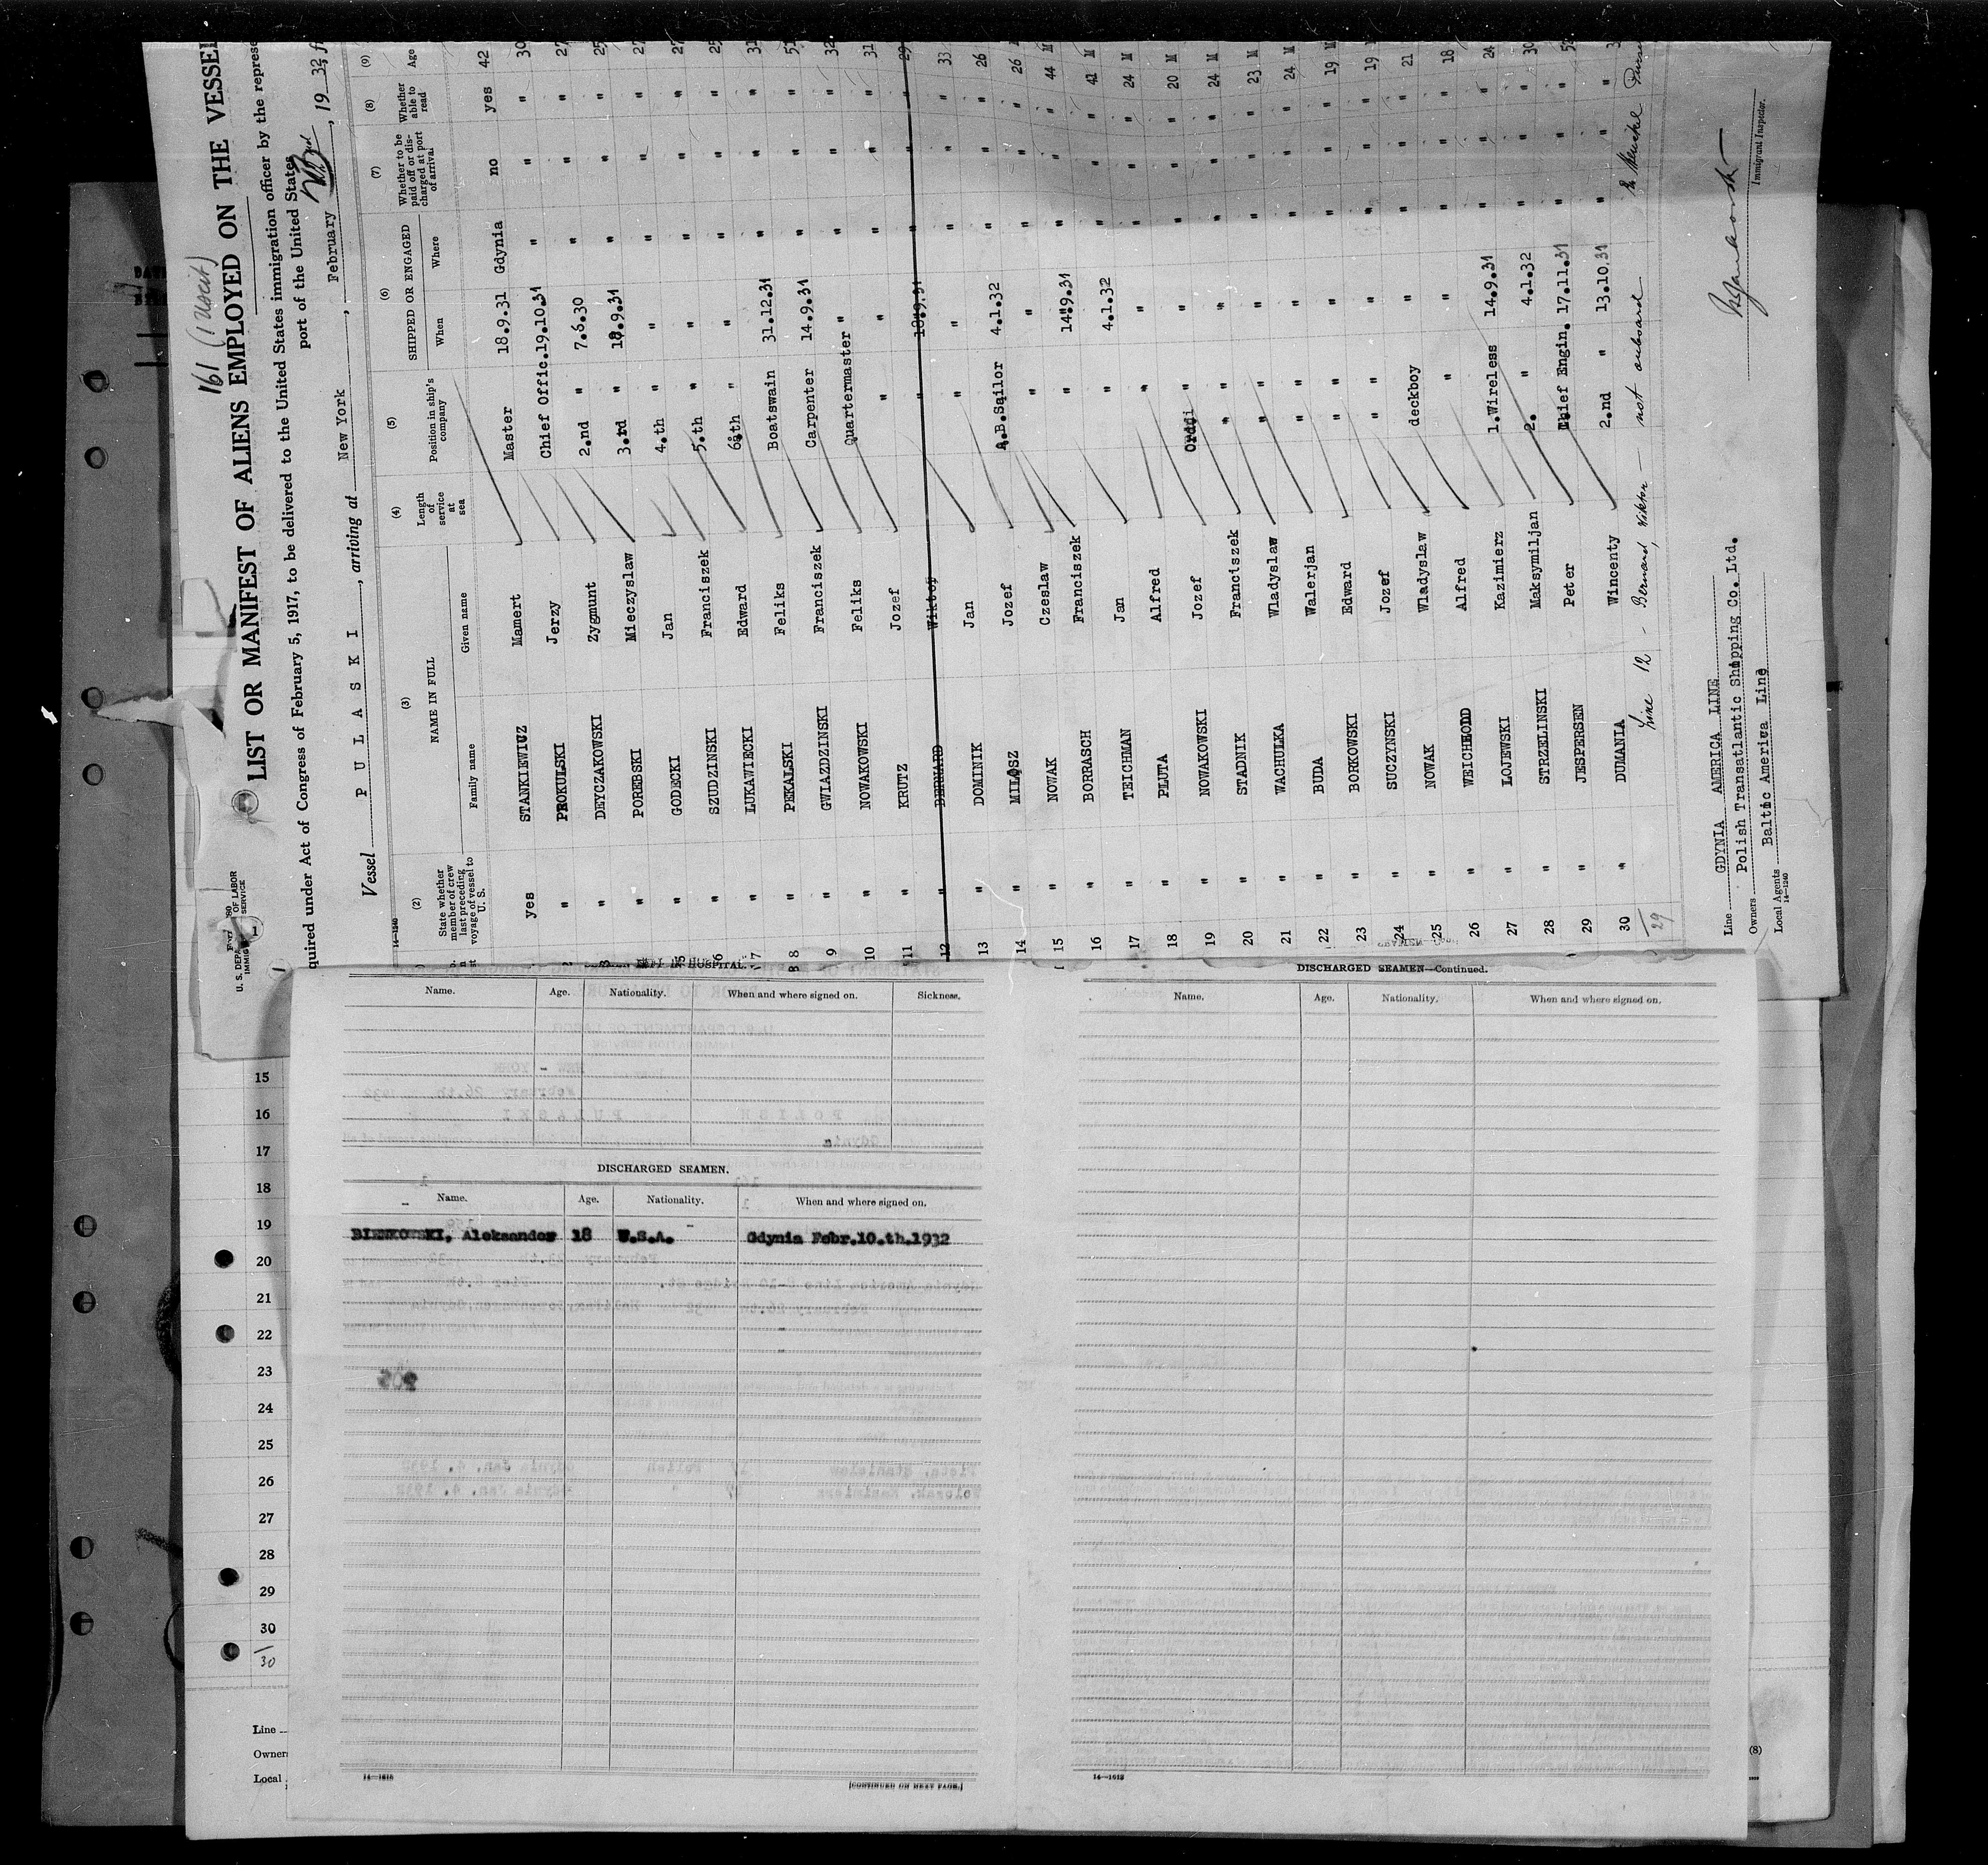 161 (1 USCit)
LIST OR MANIFEST OF ALIENS EMPLOYED ON THE VESSEL
quired under Act of Congress of February 5, 1917, to be delivered to the United States immigration officer by the represe
port of the United States
Vessel P U L A S K I, arriving at New York, February, 19 32, f
14—1240
(2) (3) (4) (5) (6) (7) (8) (9)
State whether member of crew last preceding voyage of vessel to U. S.
NAME IN FULL
Family name Given name
Length of service at sea
Position in ship's company
SHIPPED OR ENGAGED
When Where
Whether to be paid off or discharged at port of arrival
Whether able to read
Age
yes STANKIEWICZ Mamert Master 18.9.31 Gdynia no yes 42
" PROKULSKI Jerzy Chief Offic. 19.10.31 " " " 30
" DEYCZAKOWSKI Zygmunt 2.nd " 7.6.30 " " " 27
3 " POREBSKI Mieczyslaw 3.rd " 18.9.31 " " " 25
" GODECKI Jan 4.th " " " " " 27
5 " SZUDZINSKI Franciszek 5.th " " " " " 27
6 " LUKAWIECKI Edward 6.th " " " " " 25
7 " PEKALSKI Feliks Boatswain 31.12.31 " " " 31
8 " GWIAZDZINSKI Franciszek Carpenter 14.9.31 " " " 51
9 " NOWAKOWSKI Feliks Quartermaster " " " " 32
10 " KRUTZ Jozef " " " " " 31
11 " BERNARD Wiktor " 18.9.31 " " " 29
12 " DOMINIK Jan " " " " " 33
13 " MILOSZ Jozef A.B.Sailor 4.1.32 " " " 26
14 " NOWAK Czeslaw " " " " " 26
15 " BORRASCH Franciszek " 14.9.31 " " " 44 M
16 " TEICHMAN Jan " 4.1.32 " " " 41 M
17 " PLUTA Alfred " " " " " 24 M
18 " NOWAKOWSKI Jozef " " " " " 20 M
19 " STADNIK Franciszek " " " " " 24 M
20 " WACHULKA Wladyslaw " " " " " 23 M
21 " BUDA Walerjan " " " " " 24 M
22 " BORKOWSKI Edward " " " " " 19 M
23 " SUCZYNSKI Jozef " " " " " 19
24 " NOWAK Wladyslaw deckboy " " " " 21
25 " WEICHHODD Alfred " " " " " 18
26 " LOJEWSKI Kazimierz 1.Wireless 14.9.31 " " " 24
27 " STRZELINSKI Maksymiljan 2. " 4.1.32 " " " 30
28 " JESPERSEN Peter Chief Engin. 17.11.31 " " "
29 " DUMANIA Wincenty 2.nd " 13.10.31 " " "
30
29
Line 12 - Bernard, Viktor — not onboard
Line GDYNIA AMERICA LINE
Owners Polish Transatlantic Shipping Co. Ltd.
Local Agents Baltic America Line
14—1240
Immigrant Inspector.
HOSPITAL
Name. Age. Nationality. When and where signed on. Sickness.
DISCHARGED SEAMEN.
Name. Age. Nationality. When and where signed on.
BIENKOWSKI, Aleksander 18 U.S.A. Gdynia Febr.10.th.1932
14—1613
[CONTINUED ON NEXT PAGE.]
DISCHARGED SEAMEN—Continued.
Name. Age. Nationality. When and where signed on.
14—1613
15
16
17
18
19
20
21
22
23
24
25
26
27
28
29
30
30
Line
Owners
Local
(8)